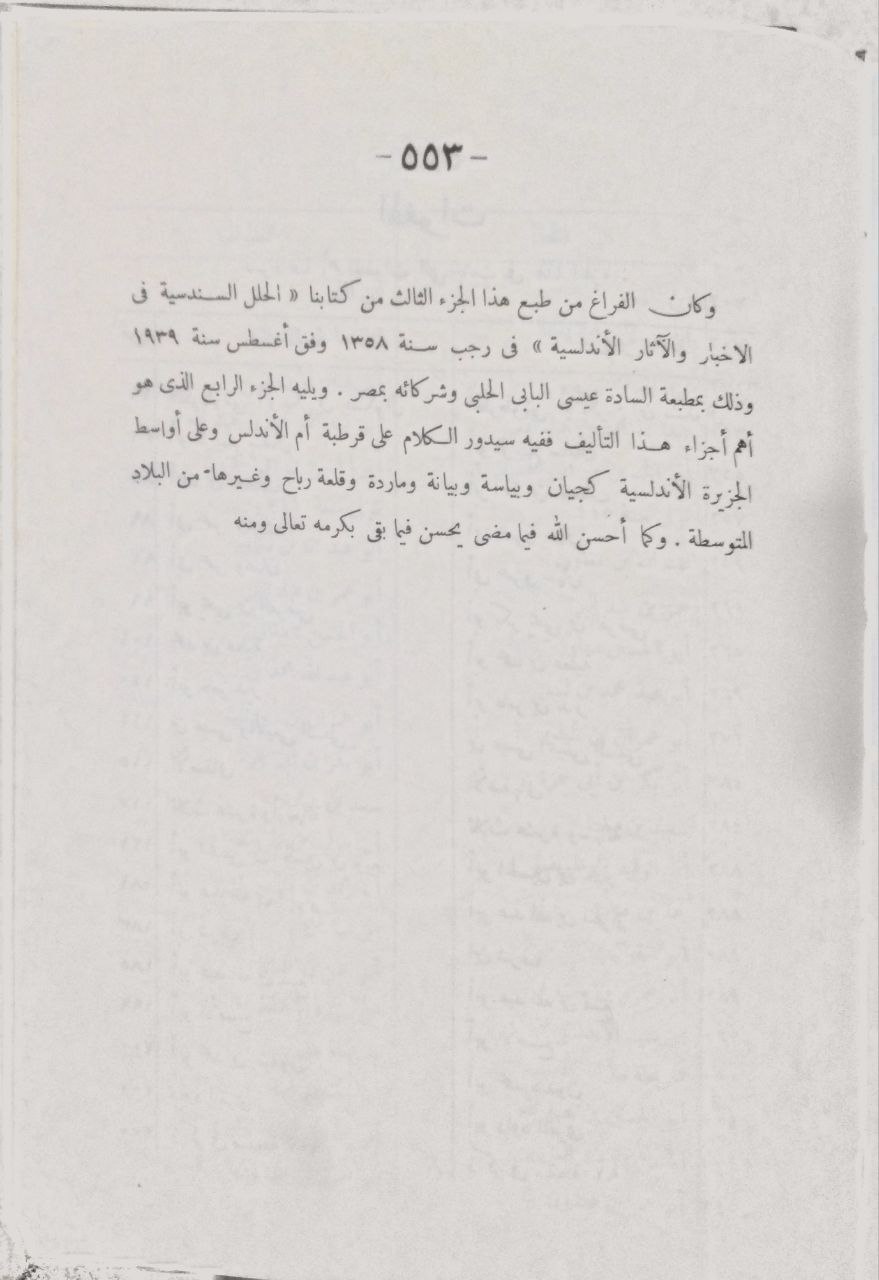 - ٥٥٣ -
وكان الفراغ من طبع هذا الجزء الثالث من كتابنا « الحلل السندسية فى
الاخبار والآثار الأندلسية » فى رجب سنة ١٣٥٨ وفق أغسطس سنة ١٩٣٩
وذلك بمطبعة السادة عيسى البابى الحلبى وشركائه بمصر . ويليه الجزء الرابع الذى هو
أهم أجزاء هذا التأليف ففيه سيدور الكلام على قرطبة أم الأندلس وعلى أواسط
الجزيرة الأندلسية كجيان وبياسة وبيانة وماردة وقلعة رباح وغيرها من البلاد
المتوسطة . وكما أحسن الله فيما مضى يحسن فيما بقى بكرمه تعالى ومنه